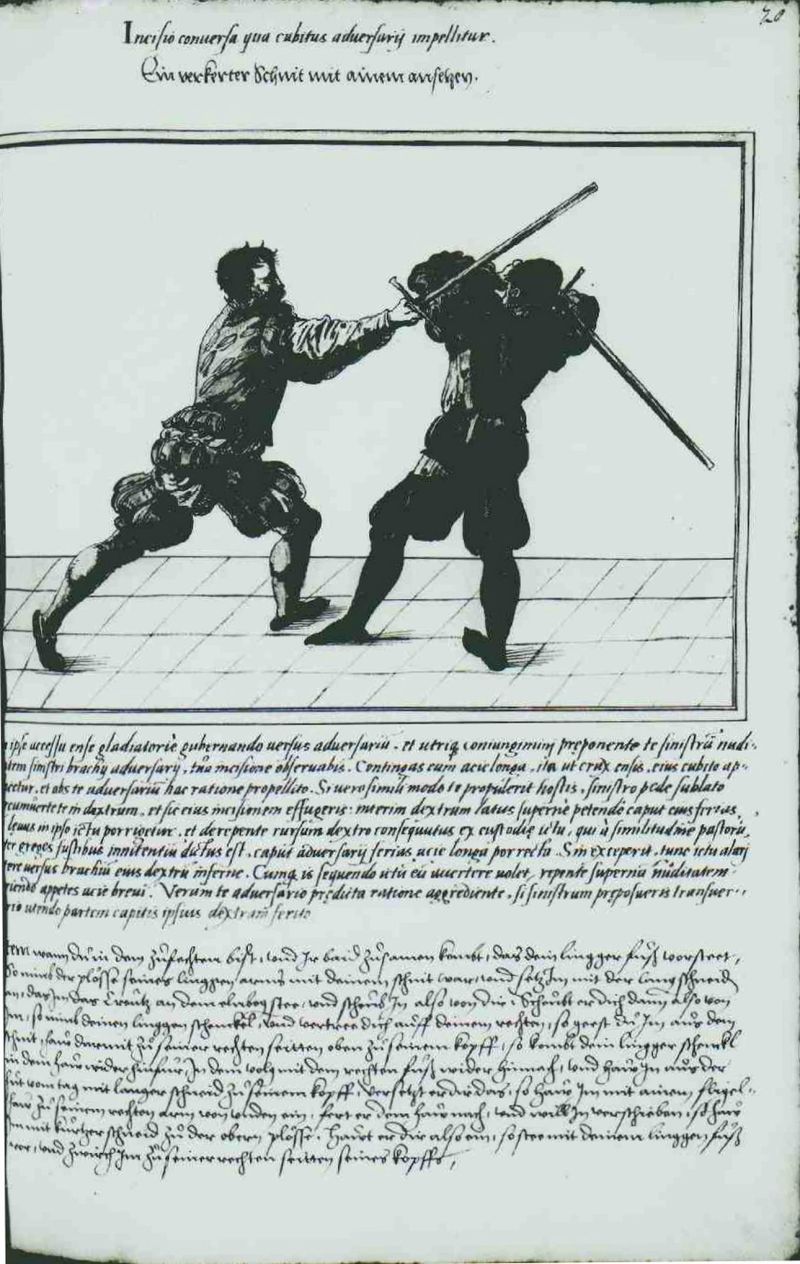 20
Incisio conversa qua cubitus adversarij impellitur.
Ein verkerter Schnit mit ainem ansetzen.
ipse accessu ense gladiatoriè gubernando versus adversariũ, et utriq̃ coniungimini preponente te sinistrũ nudi-
tem sinistri brachij adversarij, tua incisione observabis. Contingas eum acie longa, ita ut crux ensis, eius cubito ap-
petur, et abs te adversariũ hac ratione propellito. Si vero simili modo te propulerit hostis, sinistro pede sublato
te in dextrum, et sic eius incisionem effugeris: interim dextrum latus supernè petendo caput eius ferias,
in ipso ictu porrigetur, et derepente rursum dextro consequutus ex custodię ictu, qui à similitudine pastorũ,
greges fustibus innitentiũ dictus est, caput adversarij ferias acie longa porrecta. Sin exceperit, tunc ictu alari
versus brachiũ eius dextrũ infernè. Cumq̃ is sequendo ictũ eũ avertere volet, repente superna nuditatem
appetes acie brevi. Verum te adversario prędicta ratione aggrediente, si sinistrum preposueris transver-
rio utendo partem capitis ipsius dextram ferito
tem wann du in dem zufechten bist, vnd Ir baid zusamen kombt, das dein lingger fuß vorsteet,
So nimb der plösse seines linggen arms mit deinem schnit war, vnd setz Im mit der lang schneid
an, das Im das Creutz an dem elnbog stee, vnd scheub In also von dir, Scheubt er dich dann also von
Im, so nimb deinen linggen schenckel, vnd vertrit dich auff deinem rechten, so geest du Im aus dem
schnit, haw darmit zu seiner rechten seitten oben zu seinem kopff, so kombt dein lingger schenckl
in dem haw wider hinfur, In dem volg mit dem rechten fuß wider hinnach, vnd haw In aus der
hut vom tag mit langer schneid zu seinem kopff, versetzt er dir das, so haw Im mit ainem fligel-
haw zu seinem rechten arm von vnden ein, fert er dem haw nach, vnd will In verschieben, so haw
Im mit kurtzer schneid zu der obern plösse, Hawt er dir also ein, so stee mit deinem linggen fuß
vor, vnd zwirch Im zu seiner rechten seitten seines kopffs,